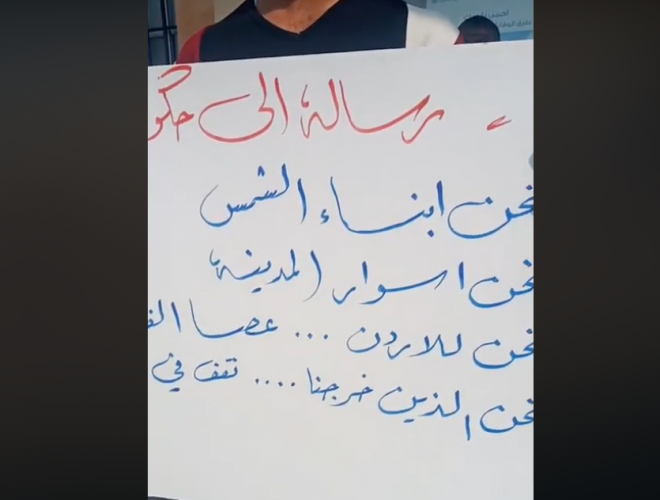 رسالة الى
نحن ابناء الشمس
نحن اسوار المدينة
نحن للاردن ... عصا
نحن الذين خرجنا .... تقف في